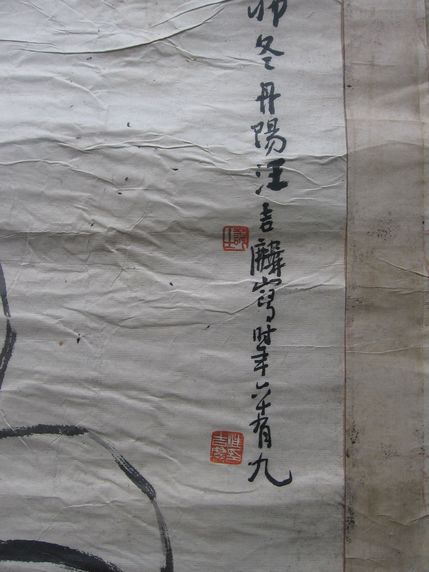 冬丹陽汪吉麟寫時年六十有九